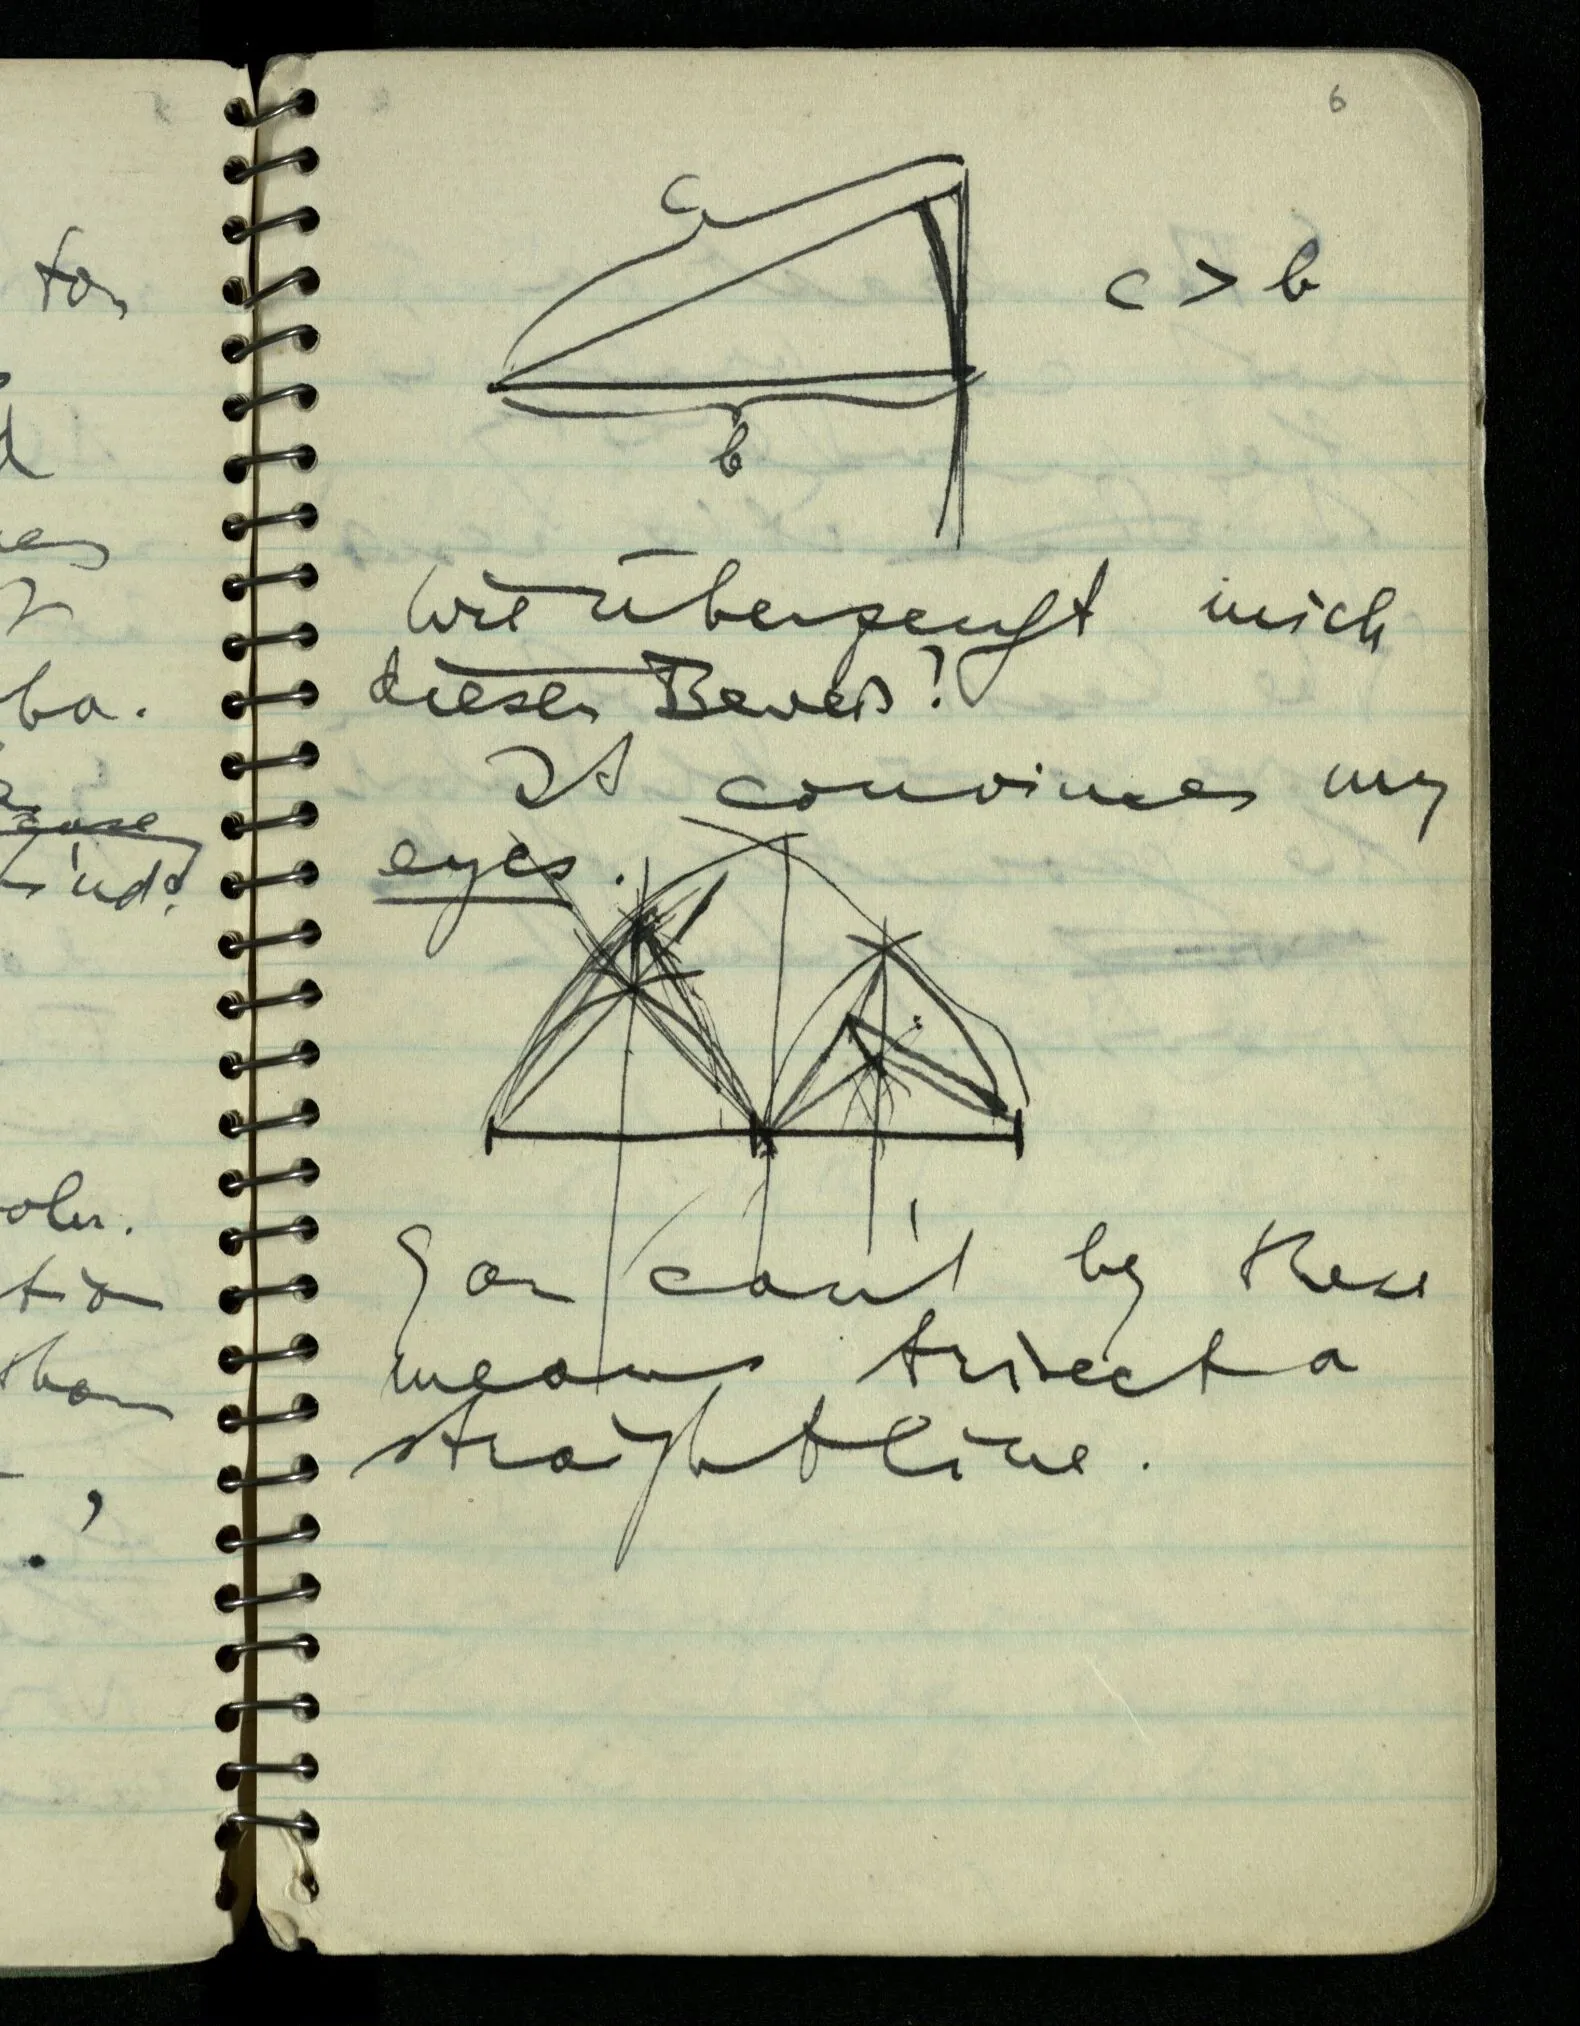 6
c
c > b
b
Wie überzeugt mich
dieser Beweis?
It convinces my
eyes.
You can't by these
means trisect a
straight line.
for
ba.
case
kind?
tion
than